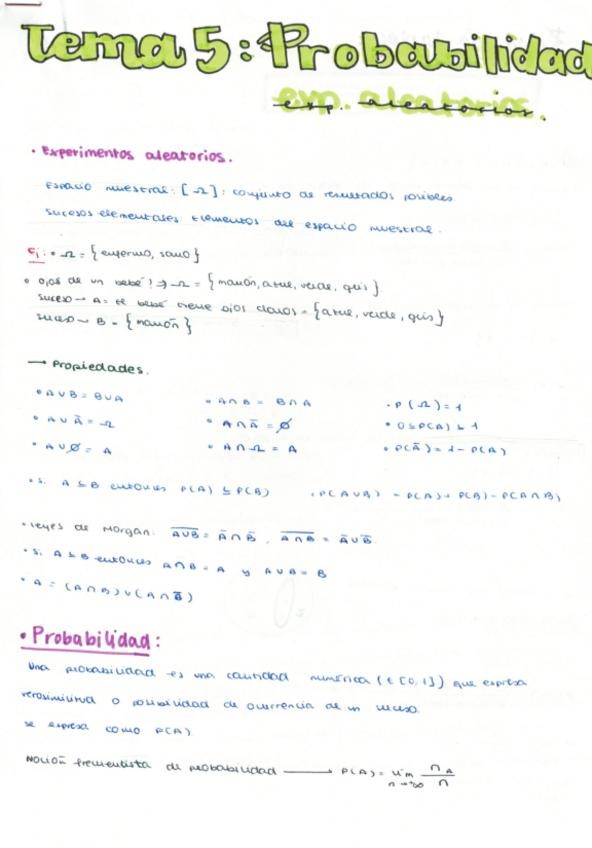 Tema 5: Probabilidad
exp. aleatorios.
• Experimentos aleatorios.
Espacio muestral: [Ω]: conjunto de resultados posibles
sucesos elementales elementos del espacio muestral.
Ej: • Ω = {enfermo, sano}
• ojos de un bebé? → Ω = {marrón, azul, verde, gris}
suceso → A = el bebé tiene ojos claros = {azul, verde, gris}
suceso → B = {marrón}
→ Propiedades.
• A∪B = B∪A • A∩B = B∩A • P(Ω) = 1
• A∪Ā = Ω • A∩Ā = ∅ • 0 ≤ P(A) ≤ 1
• A∪∅ = A • A∩Ω = A • P(Ā) = 1 - P(A)
• Si A ⊆ B entonces P(A) ≤ P(B) • P(A∪B) = P(A) + P(B) - P(A∩B)
• Leyes de Morgan: A̅∪̅B̅ = Ā∩B̅, A̅∩̅B̅ = Ā∪B̅.
• Si A ⊆ B entonces A∩B = A y A∪B = B
• A = (A∩B)∪(A∩B̅)
• Probabilidad:
Una probabilidad es una cantidad numérica (∈ [0,1]) que expresa
verosimilitud o posibilidad de ocurrencia de un suceso.
se expresa como P(A)
Noción frecuentista de probabilidad → P(A) = lim n→∞ nA/n